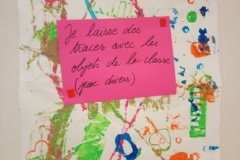 Je laisse des
traces avec les
objets de la classe
(jeux divers)